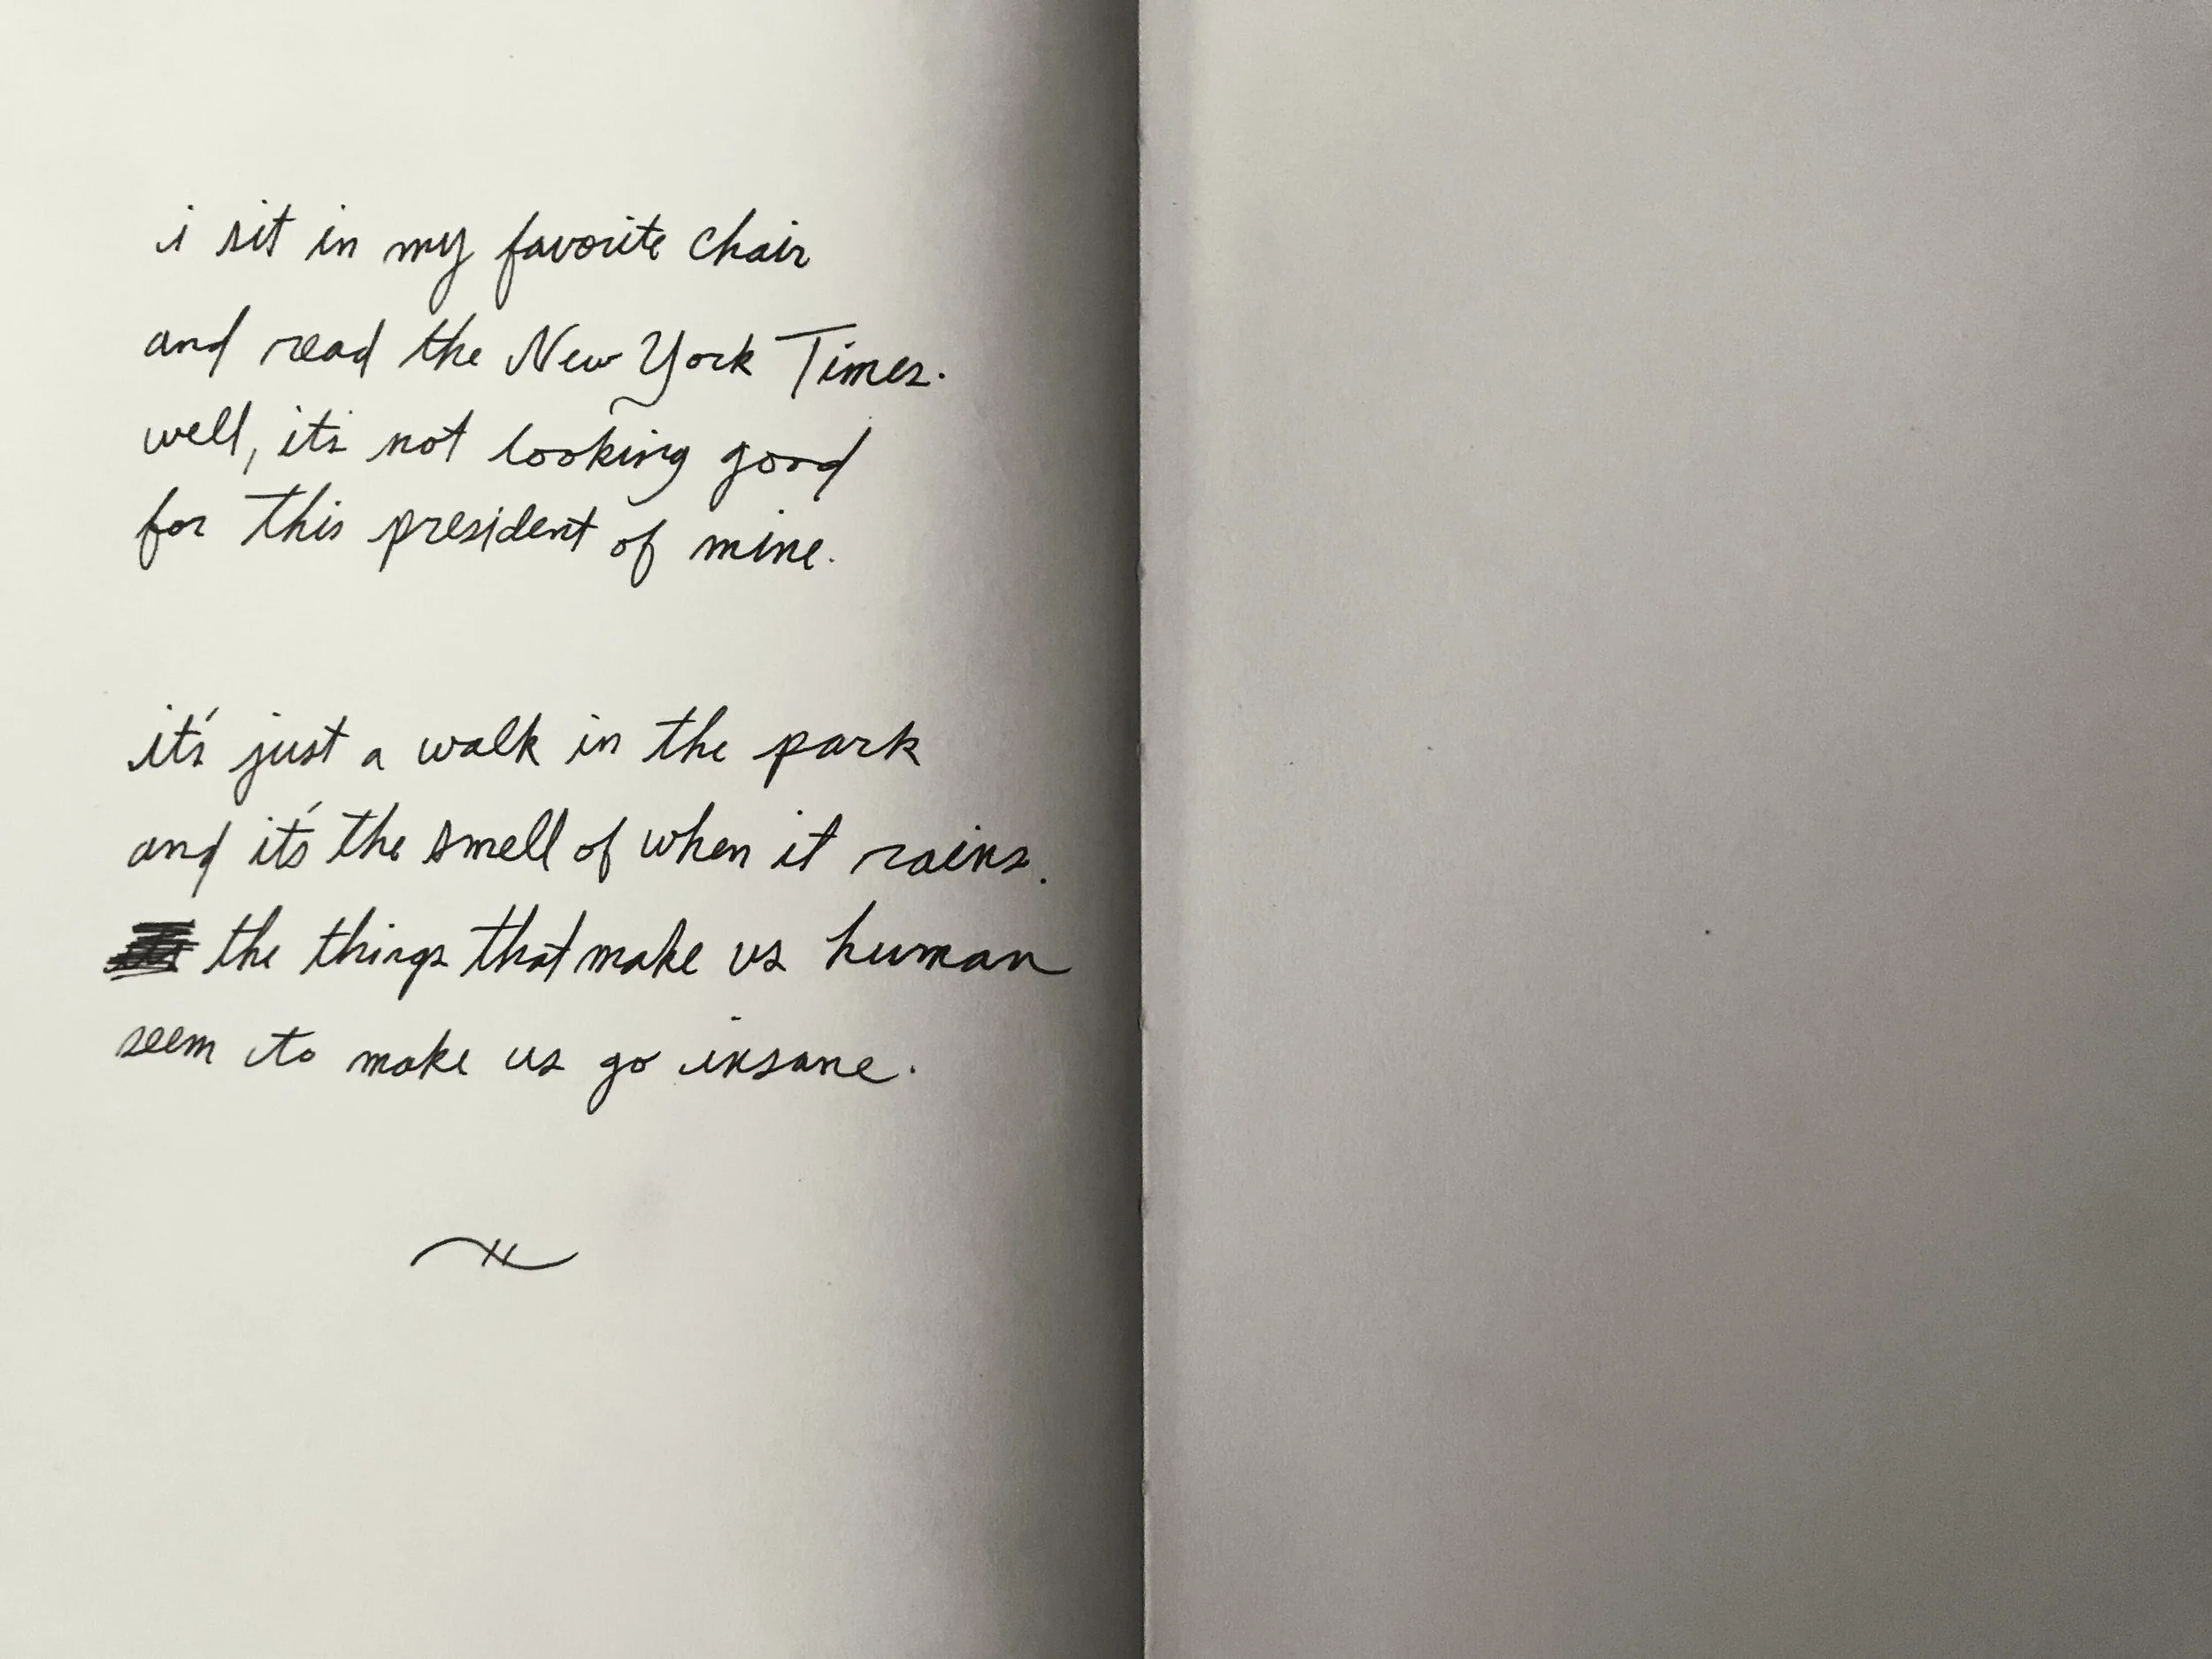 i sit in my favorite chair
and read the New York Times.
well, its not looking good
for this president of mine.
it's just a walk in the park
and it's the smell of when it rains.
the things that make us human
seem to make us go insane.